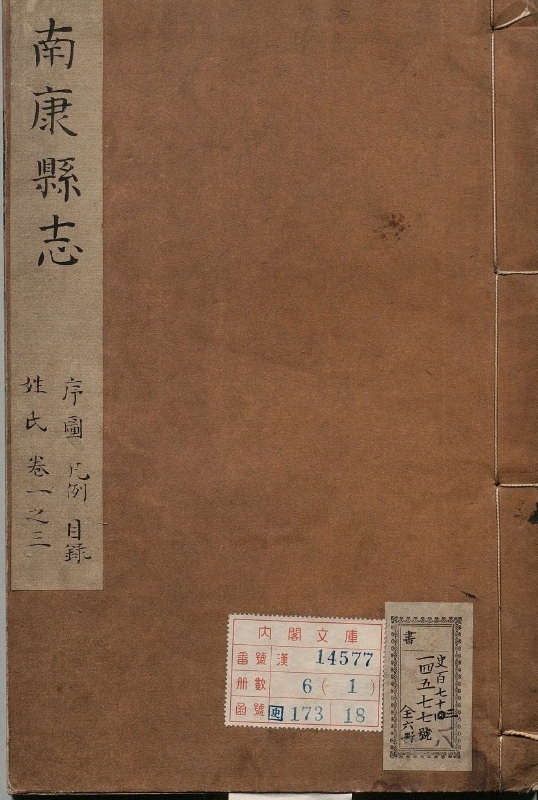 南康縣志
序圖 凡例 目錄
姓氏 卷一之三
內閣文庫
番號 漢 14577
册數 6(1)
函號 史 173 18
書
史百七十三
一四五七七號
全六册